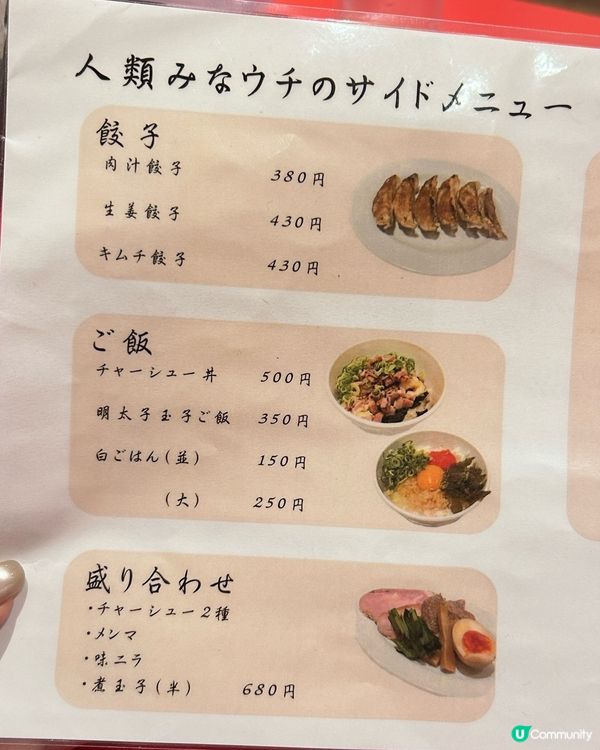 人類みなウチのサイドメニュー
餃子
肉汁餃子 380円
生姜餃子 430円
キムチ餃子 430円
ご飯
チャーシュー丼 500円
明太子玉子ご飯 350円
白ごはん(並) 150円
(大) 250円
盛り合わせ
・チャーシュー2種
・メンマ
・味ニラ
・煮玉子(半) 680円
U Community